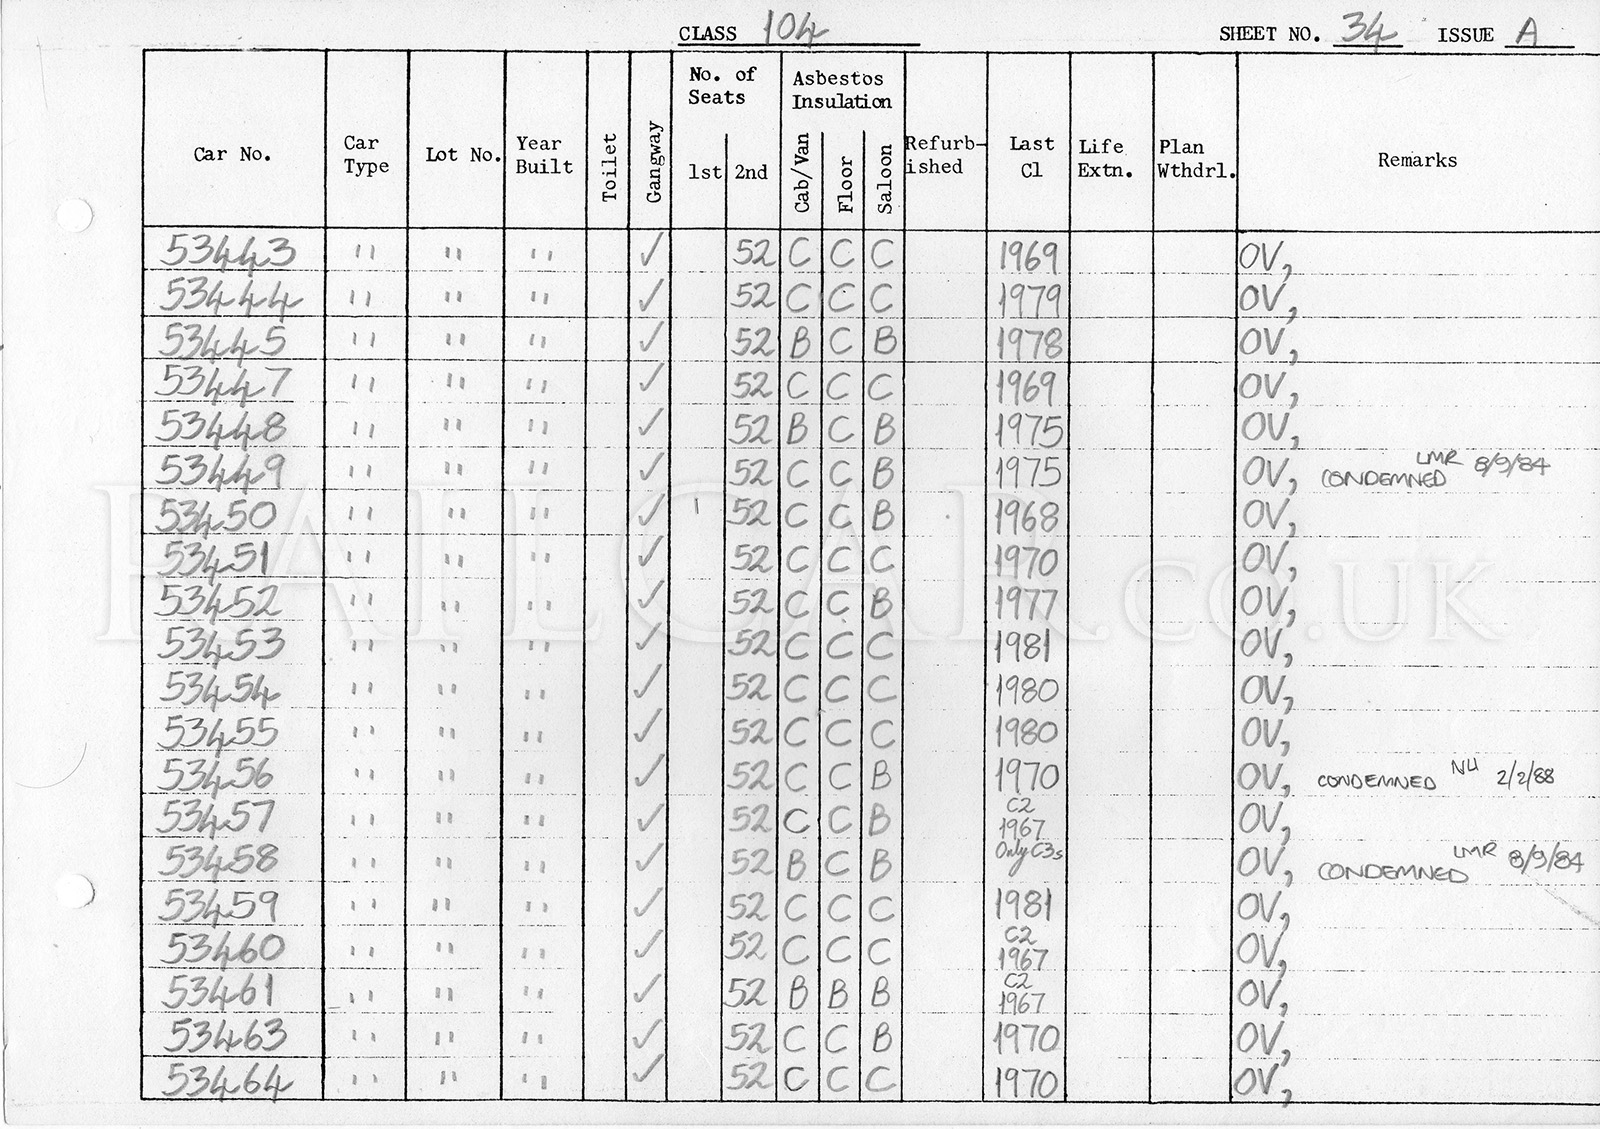 CLASS 104 SHEET NO. 34 ISSUE A
No. of Seats Asbestos Insulation
Car No. Car Type Lot No. Year Built Toilet Gangway 1st 2nd Cab/Van Floor Saloon Refurb-ished Last Cl Life Extn. Plan Wthdrl. Remarks
53443 " " " ✓ 52 C C C 1969 OV,
53444 " " " ✓ 52 C C C 1979 OV,
53445 " " " ✓ 52 B C B 1978 OV,
53447 " " " ✓ 52 C C C 1969 OV,
53448 " " " ✓ 52 B C B 1975 OV,
53449 " " " ✓ 52 C C B 1975 OV, CONDEMNED LMR 8/9/84
53450 " " " ✓ 52 C C B 1968 OV,
53451 " " " ✓ 52 C C C 1970 OV,
53452 " " " ✓ 52 C C B 1977 OV,
53453 " " " ✓ 52 C C C 1981 OV,
53454 " " " ✓ 52 C C C 1980 OV,
53455 " " " ✓ 52 C C C 1980 OV,
53456 " " " ✓ 52 C C B 1970 OV, CONDEMNED NU 2/2/88
53457 " " " ✓ 52 C C B C2 1967 OV,
53458 " " " ✓ 52 B C B Only C3s OV, CONDEMNED LMR 8/9/84
53459 " " " ✓ 52 C C C 1981 OV,
53460 " " " ✓ 52 C C C C2 1967 OV,
53461 " " " ✓ 52 B B B C2 1967 OV,
53463 " " " ✓ 52 C C B 1970 OV,
53464 " " " ✓ 52 C C C 1970 OV,
RAILCAR.CO.UK